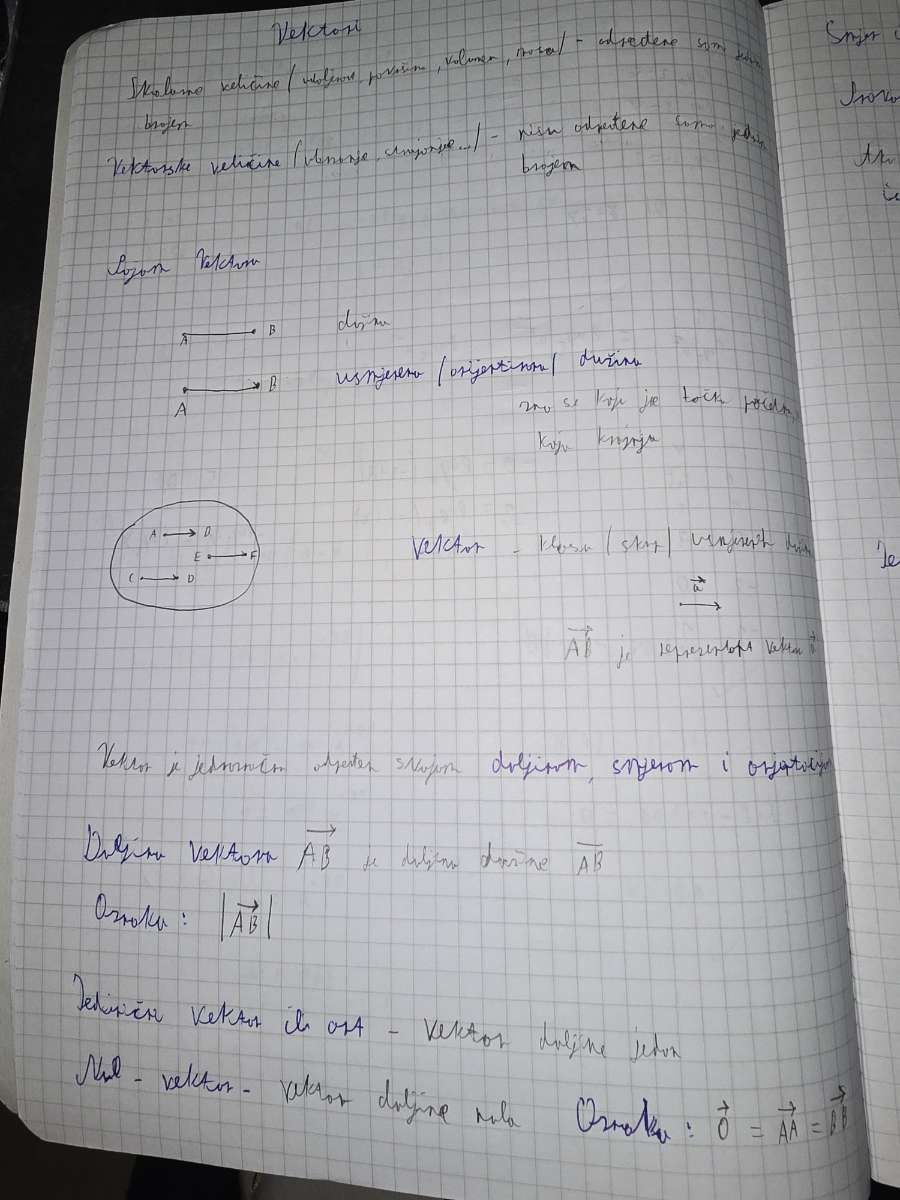 Vektori
Skalarne veličine (udaljenost, površina, volumen, masa) - određene samo jednim
brojem
Vektorske veličine (ubrzanje, strujanje...) - nisu određene samo jednim
brojem
Pojam Vektora
A B dužina
A B usmjerena (orijentirana) dužina
zna se koja je točka početna,
koja krajnja
A B
E F
C D
Vektor - klasa (skup) usmjerenih dužina
a
AB je reprezentant vektora a
Vektor je jednoznačno određen svojom duljinom, smjerom i orijentacijom
Duljina Vektora AB je duljina dužine AB
Oznaka: |AB|
Jedinični vektor ili ort - vektor duljine jedan
Nul - vektor - vektor duljine nula Oznaka: 0 = AA = BB
Smjer